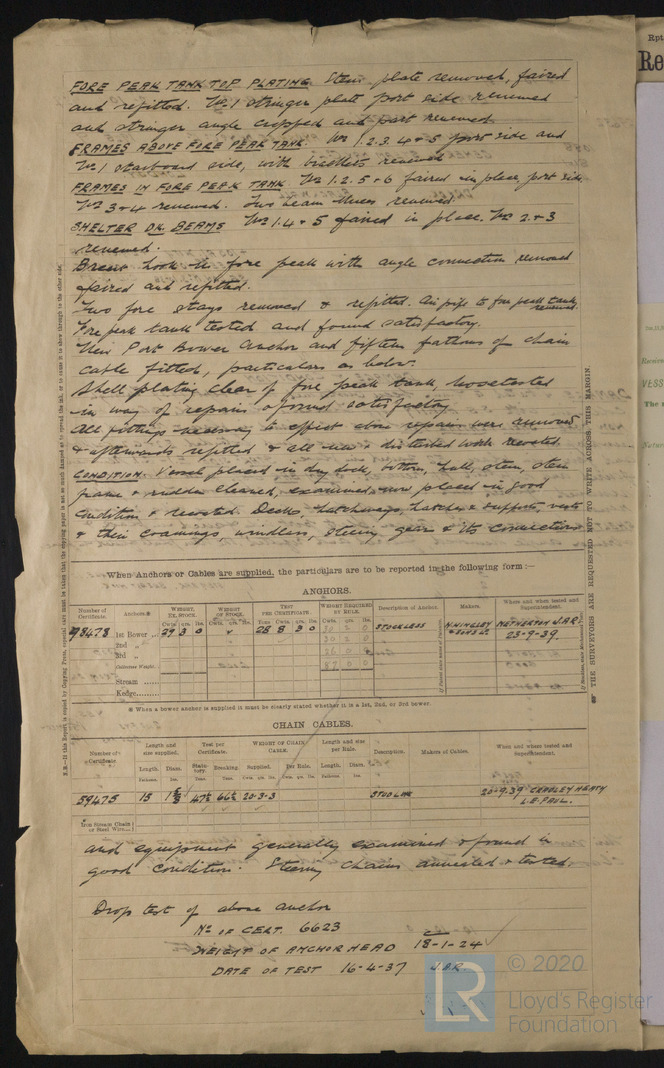 FORE PEAK TANK TOP PLATING. Stem plate removed, faired
and refitted. No 1 stringer plate port side renewed
and stringer angle cropped and part renewed.
FRAMES ABOVE FORE PEAK TANK. No 1.2.3.4 & 5 port side and
No 1 starboard side, with brackets renewed
FRAMES IN FORE PEAK TANK. No 1.2.5 & 6 faired in place port side,
No 3 & 4 renewed. Two beam knees renewed.
SHELTER DK. BEAMS No 1.4 & 5 faired in place. No 2 & 3
renewed.
Breast hook in fore peak with angle connection removed
faired and refitted.
Two fore stays removed & refitted. Air pipe to fore peak tank renewed.
Fore peak tank tested and found satisfactory.
New Port Bower Anchor and fifteen fathoms of chain
cable fitted, particulars as below.
Shell plating clear of fore peak tank, hose tested
in way of repairs & found satisfactory
All fittings necessary to effect above repairs were removed
& afterwards refitted & all new & disturbed work recoated.
CONDITION. Vessel placed in dry dock, bottom, hull, stem, stern
frame & rudder cleaned, examined, now placed in good
condition & recoated. Decks, hatchways, hatches & supports, vents
& their coamings, windlass, steering gear & its connections
When Anchors or Cables are supplied, the particulars are to be reported in the following form :—
ANCHORS.
Number of Certificate. Anchors.* WEIGHT, EX. STOCK. WEIGHT OF STOCK. TEST PER CERTIFICATE. WEIGHT REQUIRED BY RULE. Description of Anchor. Makers. Where and when tested and Superintendent.
Cwts. qrs. lbs. Cwts. qrs. lbs. Tons Cwts. qrs. lbs. Cwts. qrs. lbs.
93478 1st Bower 29 3 0 28 8 3 0 STOCKLESS N. HINGLEY & SONS Ld NETHERTON J.A.R.
23-9-39.
2nd „
3rd „
Collective Weight.
Stream
Kedge
* When a bower anchor is supplied it must be clearly stated whether it is a 1st, 2nd, or 3rd bower.
CHAIN CABLES.
Number of Certificate Length and size supplied. Test per Certificate. WEIGHT OF CHAIN CABLE. Length and size per Rule. Description. Makers of Cables. Where and when tested and Superintendent.
Length. Diam. Statutory. Breaking Supplied. Per Rule. Length. Diam.
Fathoms. Ins. Tons. Tons. Cwts. qrs. lbs. Cwts. qrs. lbs. Fathoms. Ins.
59475 15 20-3-3 STUD LINK 20-9-39 CRADLEY HEATH
L.E. PAUL.
Iron Stream Chain or Steel Wire
and equipment generally examined & found in
good condition. Steering Chains annealed & tested.
Drop test of above anchor
No OF CERT. 6623
WEIGHT OF ANCHOR HEAD 18-1-24
DATE OF TEST 16-4-37
THE SURVEYORS ARE REQUESTED NOT TO WRITE ACROSS THIS MARGIN.
Rpt
Re
VESS
© 2020
LR
Lloyd's Register
Foundation